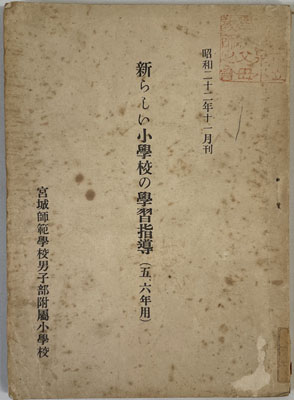 昭和二十二年十一月刊
新らしい小學校の學習指導（五、六年用）
宮城師範學校男子部附屬小學校